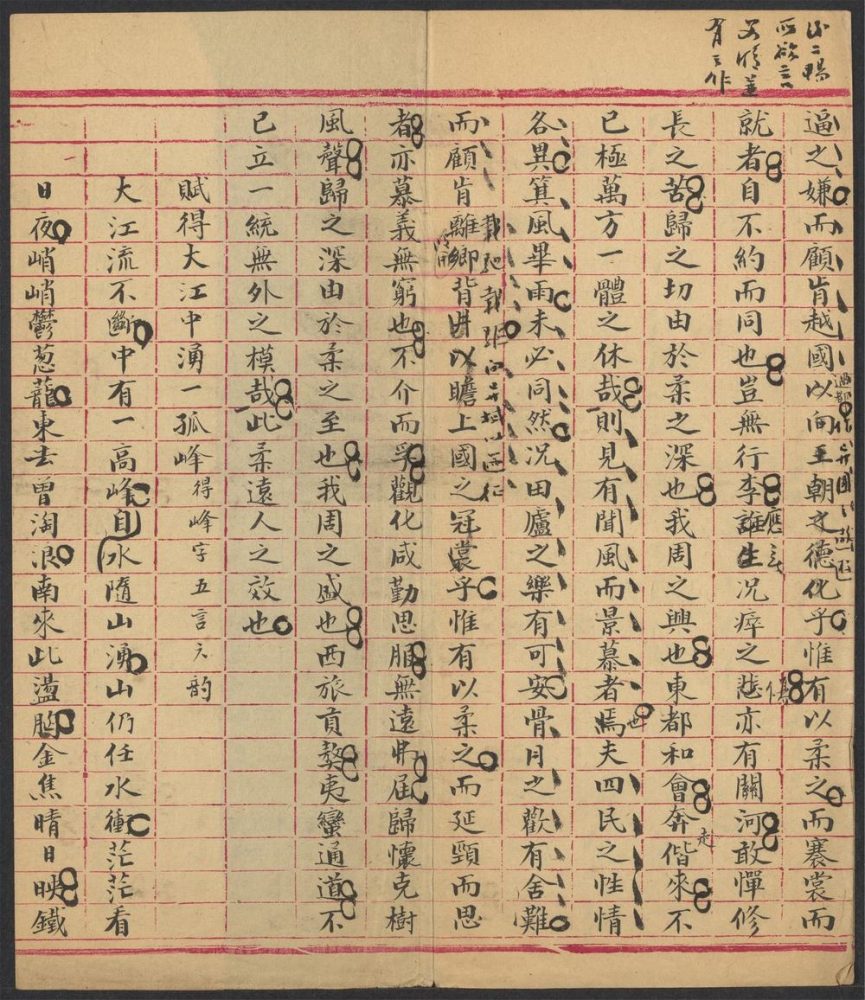 逼之嫌而顧肯越國以向王朝之德化乎惟有以柔之而褰裳而
就者自不約而同也豈無行李誰生况瘁之悲亦有關河敢憚修
長之苦歸之切由於柔之深也我周之興也東都和會奔偕來不
已極萬方一體之休哉則見有聞風而景慕者焉夫四民之性情
各異箕風畢雨未必同然况田廬之樂有可安骨月之歡有舍難
而顧肯離鄉背井以瞻上國之冠裳乎惟有以柔之而延頸而思
者亦慕義無窮也不介而孚觀化咸勤思服無遠弗屆歸懷克樹
風聲歸之深由於柔之至也我周之盛也西旅貢獒夷蠻通道不
已立一統無外之模哉此柔遠人之效也
賦得大江中湧一孤峰得峰字五言六韵
大江流不斷中有一高峰自水隨山湧山仍任水衝茫茫看
日夜峭峭鬱葱蘢東去曾淘浪南來此盪胸金焦晴日映鐵